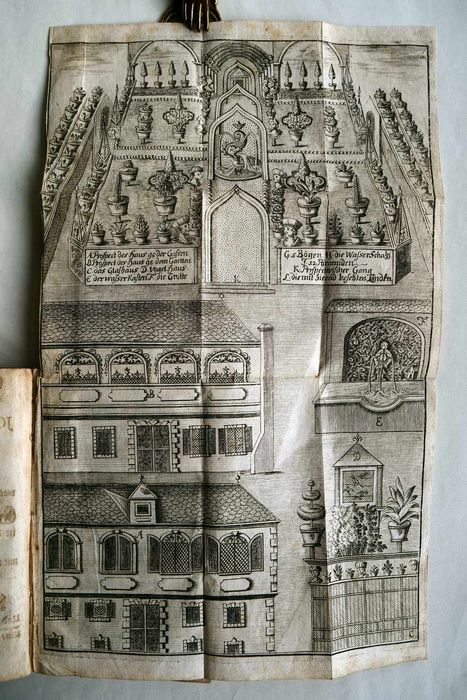 A Prospect des Haus gegder Gassen
B Prospect des Haus gg dem Garten
C das Glashaus D Vogel haus
E der wasser Kasten F die Grotte
G 5 Bögen H die Wasser Schatz
I 12 Piramiden
K Prospectivischer Gang
L die mit Zierad besetzten Länden
A
B
C
D
E
F